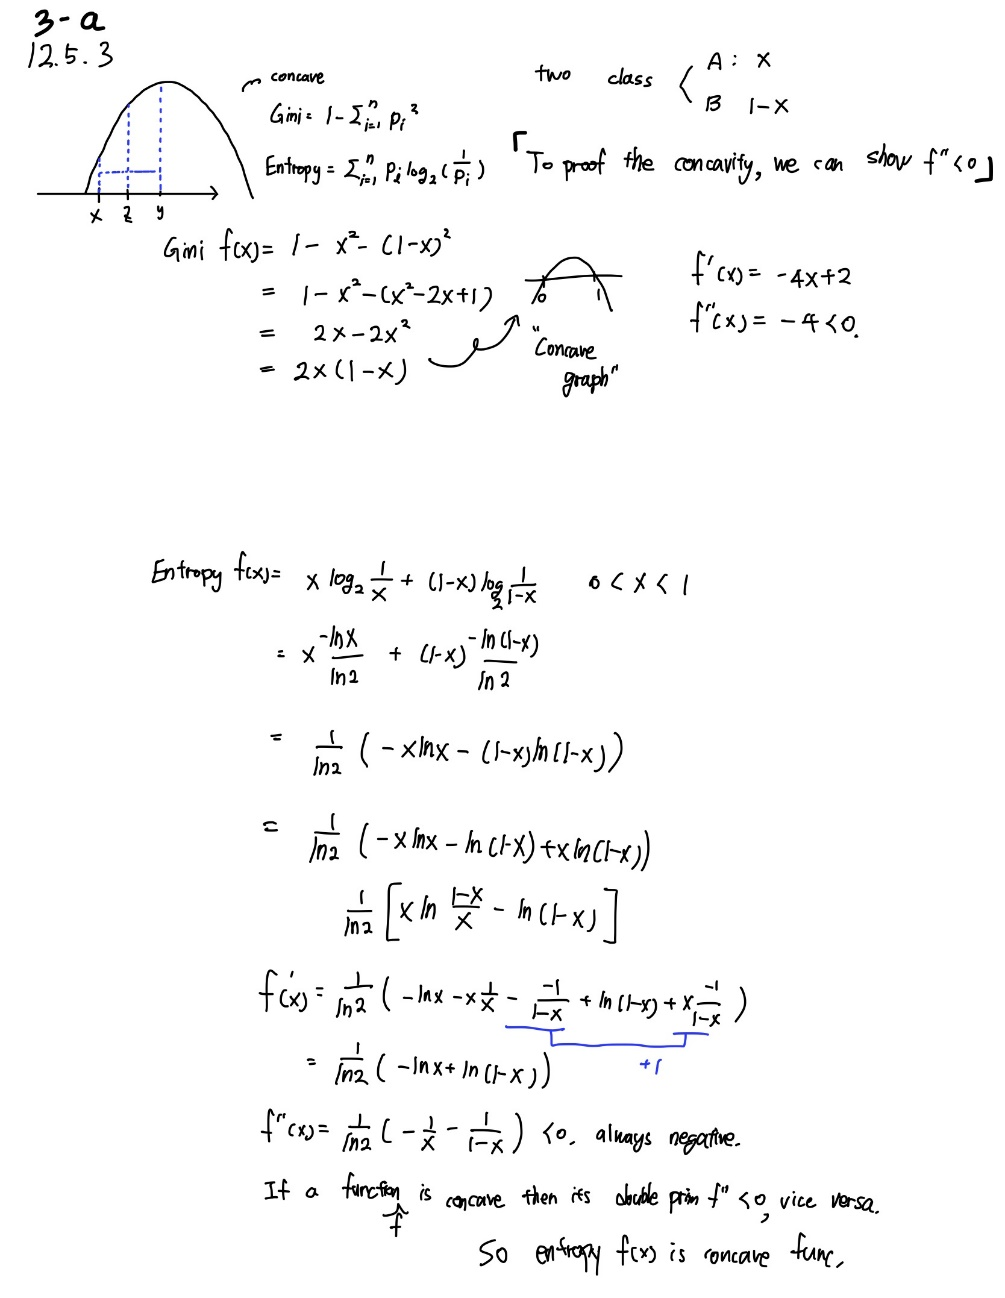 3-a
12.5.3
concave
Gini = 1 - Σⁿᵢ₌₁ Pᵢ²
Entropy = Σⁿᵢ₌₁ Pᵢ log₂(1/Pᵢ)
x z y
two class < A : x
B 1-x
「To proof the concavity, we can show f" < 0」
Gini f(x) = 1 - x² - (1-x)²
= 1 - x² - (x² - 2x + 1)
= 2x - 2x²
= 2x(1-x)
0 1
"Concave
graph"
f'(x) = -4x+2
f"(x) = -4 < 0.
Entropy f(x) = x log₂ 1/x + (1-x) log₂ 1/1-x 0 < x < 1
= x -lnx/ln2 + (1-x) -ln(1-x)/ln2
= 1/ln2 (-xlnx - (1-x)ln(1-x))
= 1/ln2 (-xlnx - ln(1-x) + xln(1-x))
1/ln2 [x ln 1-x/x - ln(1-x)]
f'(x) = 1/ln2 (-lnx - x 1/x - -1/1-x + ln(1-x) + x -1/1-x)
+1
= 1/ln2 (-lnx + ln(1-x))
f"(x) = 1/ln2 (-1/x - 1/1-x) < 0, always negative.
If a function f is concave then its double prim f" < 0, vice versa.
So entropy f(x) is concave func.